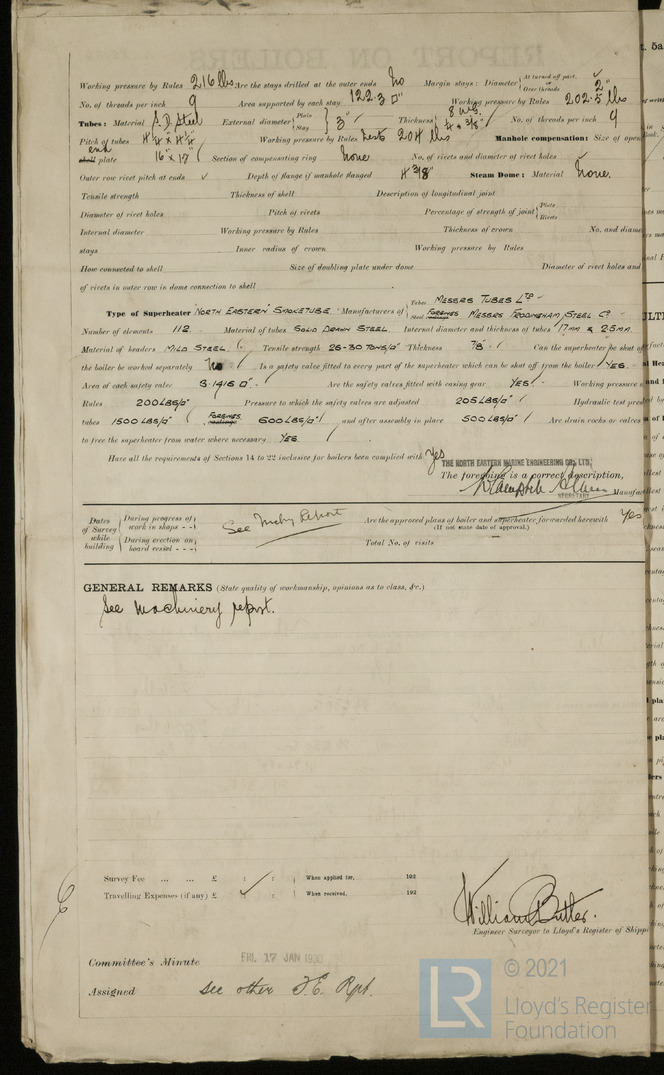 Working pressure by Rules 216 lbs Are the stays drilled at the outer ends No Margin stays: Diameter { At turned off part, or Over threads 2"
No. of threads per inch 9 Area supported by each stay 122.3 □" Working pressure by Rules 202.5 lbs
Tubes: Material S.D. Steel External diameter { Plain Stay } 3" Thickness { 8 W.G. 1/4 & 3/8" No. of threads per inch 9
Pitch of tubes 4 1/4 x 4 1/4 Working pressure by Rules 204 lbs Manhole compensation: Size of open
end shell plate 16" x 17" Section of compensating ring None No. of rivets and diameter of rivet holes
Outer row rivet pitch at ends Depth of flange if manhole flanged 4 3/8" Steam Dome: Material None.
Tensile strength Thickness of shell Description of longitudinal joint
Diameter of rivet holes Pitch of rivets Percentage of strength of joint { Plate Rivets
Internal diameter Working pressure by Rules Thickness of crown No. and diame
stays Inner radius of crown Working pressure by Rules
How connected to shell Size of doubling plate under dome Diameter of rivet holes and
of rivets in outer row in dome connection to shell
Type of Superheater "NORTH EASTERN" SMOKETUBE. Manufacturers of { Tubes MESSRS TUBES LTD Steel FORGINGS MESSRS FRODINGHAM STEEL Co
Number of elements 112. Material of tubes SOLID DRAWN STEEL. Internal diameter and thickness of tubes 17MM & 2.5MM.
Material of headers MILD STEEL. Tensile strength 26-30 TONS/□" Thickness 7/8" Can the superheater be shut of
the boiler be worked separately No Is a safety valve fitted to every part of the superheater which can be shut off from the boiler YES.
Area of each safety valve 3.1416 □" Are the safety valves fitted with easing gear YES Working pressure
Rules 200 LBS/□" Pressure to which the safety valves are adjusted 205 LBS/□" Hydraulic test pre
tubes 1500 LBS/□" FORGINGS 600 LBS/□" and after assembly in place 500 LBS/□" Are drain cocks or
to free the superheater from water where necessary YES.
Have all the requirements of Sections 14 to 22 inclusive for boilers been complied with Yes
THE NORTH EASTERN MARINE ENGINEERING CO., LTD.
The foregoing is a correct description,
SECRETARY Manufac
Dates of Survey while building { During progress of work in shops - - During erection on board vessel - - - See Mchy Report Are the approved plans of boiler and superheater forwarded herewith Yes
(If not state date of approval.)
Total No. of visits
GENERAL REMARKS (State quality of workmanship, opinions as to class, &c.)
See Machinery report.
Survey Fee ... ... £ : : When applied for, 192
Travelling Expenses (if any) £ : : When received, 192
William Butler.
Engineer Surveyor to Lloyd's Register of Shipp
Committee's Minute FRI. 17 JAN 1930
Assigned See other F.E. Rpt.
LR © 2021
Lloyd's Register
Foundation